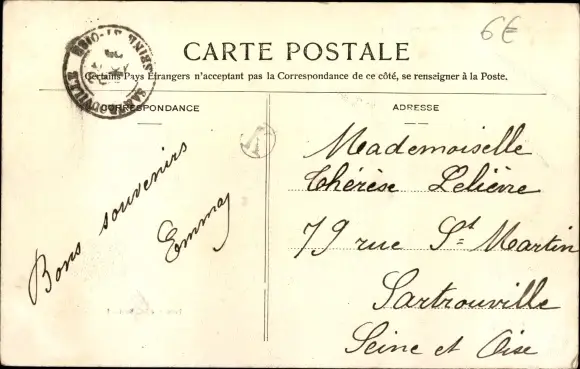 6€
CARTE POSTALE
Certains Pays Étrangers n'acceptant pas la Correspondance de ce côté, se renseigner à la Poste.
CORRESPONDANCE
ADRESSE
SARTROUVILLE
SEINE-ET-OISE
Bons souvenirs
Emma
Mademoiselle
Thérèse Lelièvre
79 rue St Martin
Sartrouville
Seine et Oise